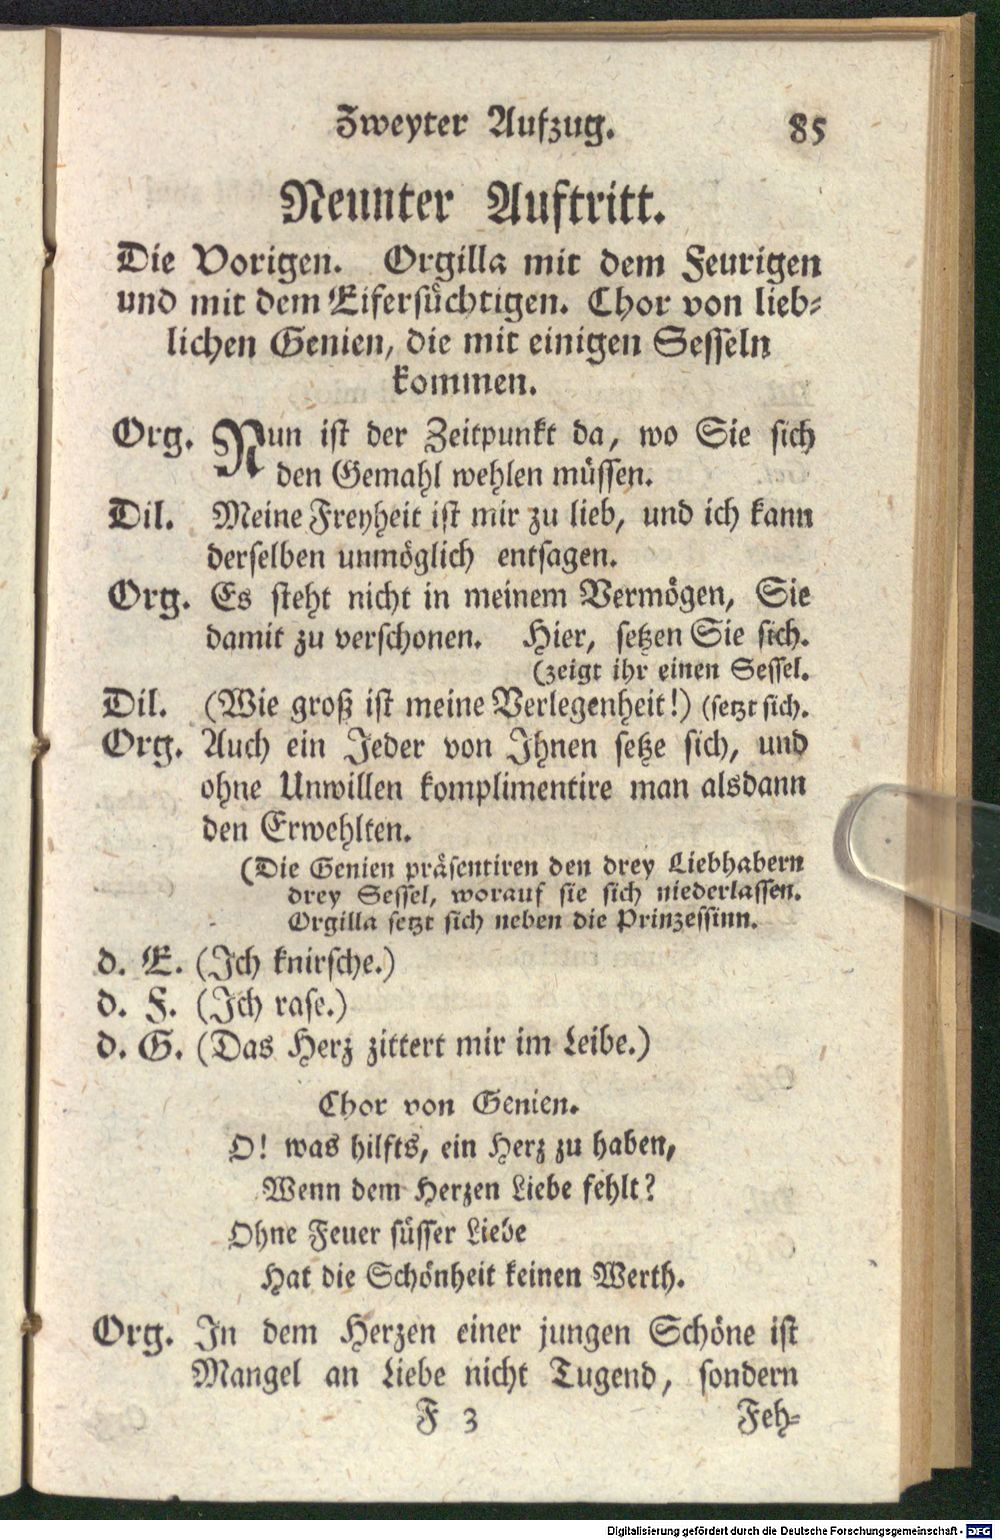 Zweyter Aufzug. 85
Neunter Auftritt.
Die Vorigen. Orgilla mit dem Feurigen
und mit dem Eifersüchtigen. Chor von lieb-
lichen Genien, die mit einigen Sesseln
kommen.
Org. Nun ist der Zeitpunkt da, wo Sie sich
den Gemahl wehlen müssen.
Dil. Meine Freyheit ist mir zu lieb, und ich kann
derselben unmöglich entsagen.
Org. Es steht nicht in meinem Vermögen, Sie
damit zu verschonen. Hier, setzen Sie sich.
(zeigt ihr einen Sessel.
Dil. (Wie groß ist meine Verlegenheit!) (setzt sich).
Org. Auch ein Jeder von Ihnen setze sich, und
ohne Unwillen komplimentire man alsdann
den Erwehlten.
(Die Genien präsentiren den drey Liebhabern
drey Sessel, worauf sie sich niederlassen.
Orgilla setzt sich neben die Prinzessinn.
d. E. (Ich knirsche.)
d. F. (Ich rase.)
d. G. (Das Herz zittert mir im Leibe.)
Chor von Genien.
O! was hilfts, ein Herz zu haben,
Wenn dem Herzen Liebe fehlt?
Ohne Feuer süsser Liebe
Hat die Schönheit keinen Werth.
Org. In dem Herzen einer jungen Schöne ist
Mangel an Liebe nicht Tugend, sondern
F 3 Feh-
Digitalisierung gefördert durch die Deutsche Forschungsgemeinschaft - DFG